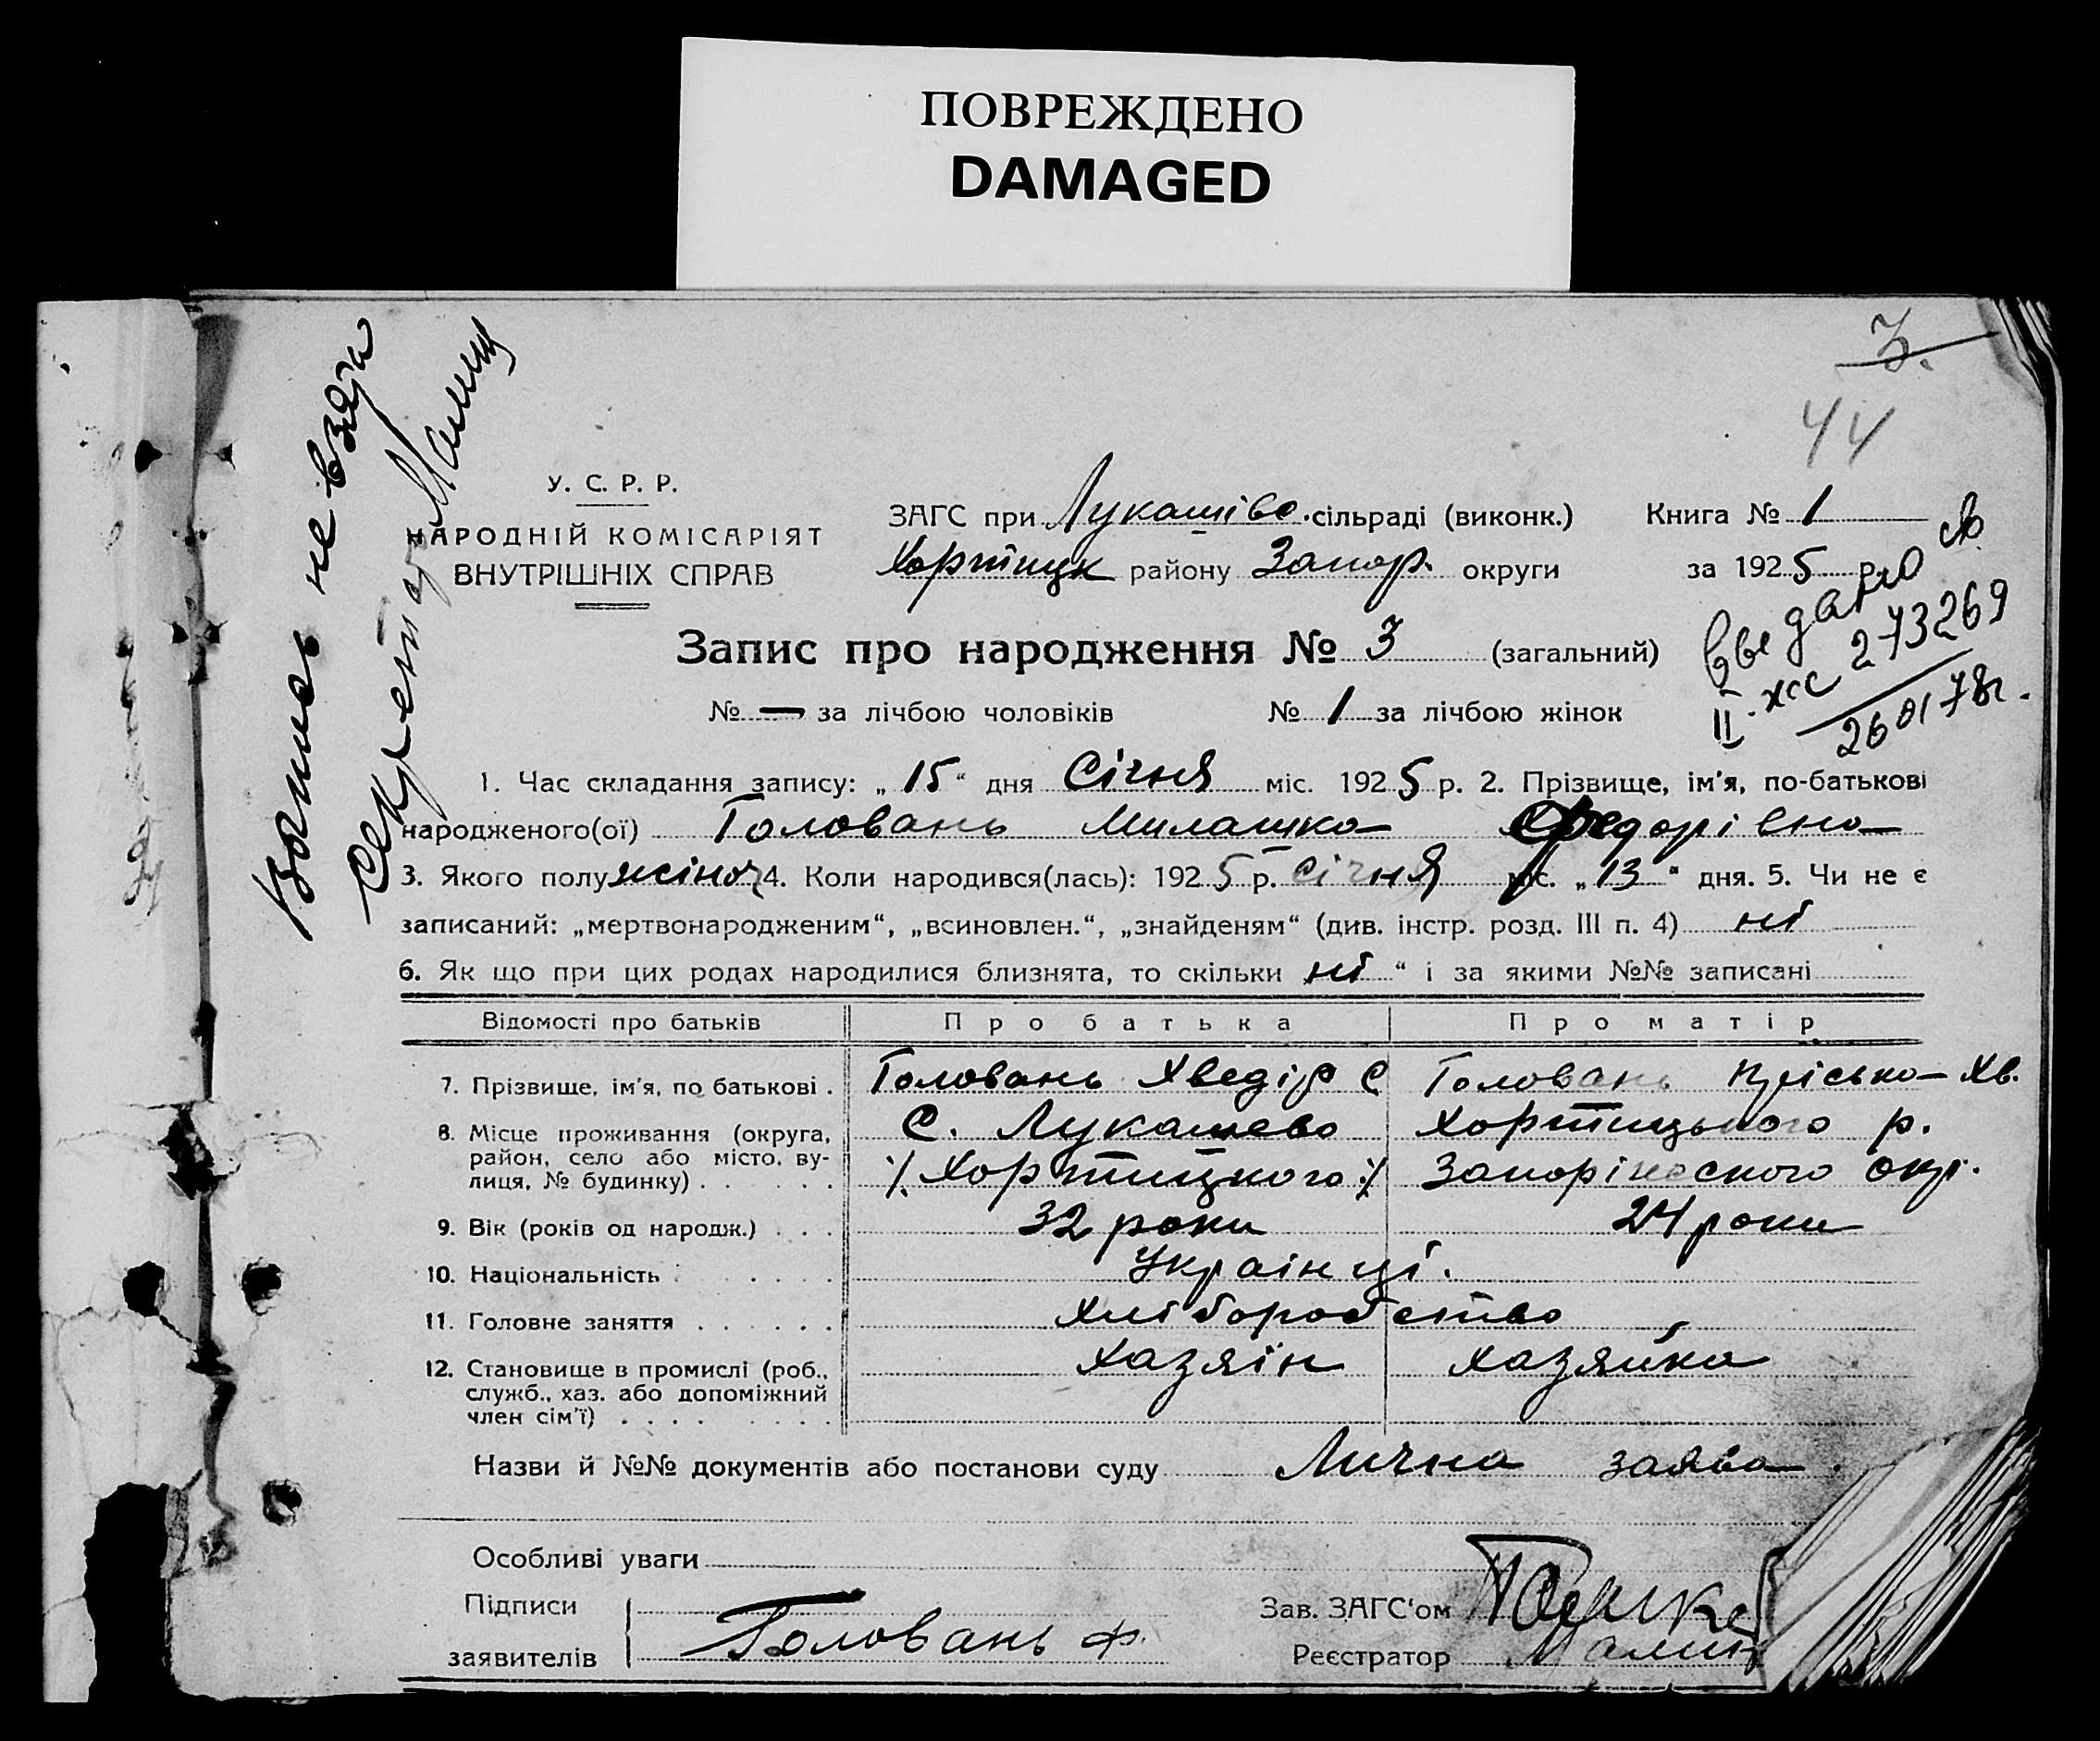 ПОВРЕЖДЕНО
DAMAGED
3.
44
Вопись не взята
Секретар Малиц
У. С. Р. Р.
НАРОДНІЙ КОМІСАРІЯТ
ВНУТРІШНІХ СПРАВ
ЗАГС при Лукашівс. сільраді (виконк.) Книга № 1
Хортицк району Запор. округи за 1925 р.
Запис про народження № 3 (загальний)
№ — за лічбою чоловіків № 1 за лічбою жінок
II. жс 273269
26 01 78г.
1. Час складання запису: „ 15 “ дня Січня міс. 1925 р. 2. Прізвище, ім'я, по-батькові
народженого(ої) Головань Милашка Федорівна
3. Якого полу жіноч 4. Коли народився(лась): 1925 р. Січня міс. „ 13 “ дня. 5. Чи не є
записаний: „мертвонародженим“, „всиновлен.“, „знайденям“ (див. інстр. розд. III п. 4) ні
6. Як що при цих родах народилися близнята, то скільки ні “ і за якими №№ записані
Відомості про батьків Про батька Про матір
7. Прізвище, ім'я, по батькові . Головань Хведір С Головань Пріська Хв.
8. Місце проживання (округа, район, село або місто, вулиця, № будинку) . . . . . С. Лукашево Хортицького р.
./. Хортицкого ./. Запоріжского окр.
9. Вік (років од народж.) . . . 32 роки 24 роки
10. Національність . . . . . Українці.
11. Головне заняття . . . . . . Хліборобство
12. Становище в промислі (роб., служб., хаз. або допоміжний член сім'ї) . . . . . . . . Хазяїн Хазяйка
Назви й №№ документів або постанови суду Лична заява.
Особливі уваги
Підписи
заявителів Головань Ф.
Зав. ЗАГС'ом
Реєстратор Малиц